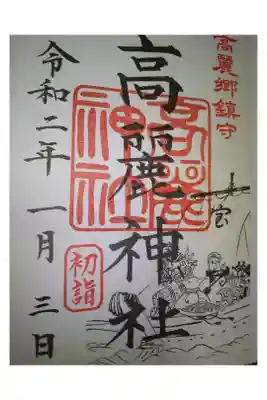 高麗郷鎮守
宝
高麗神社
高麗神社
令和二年一月三日
初詣